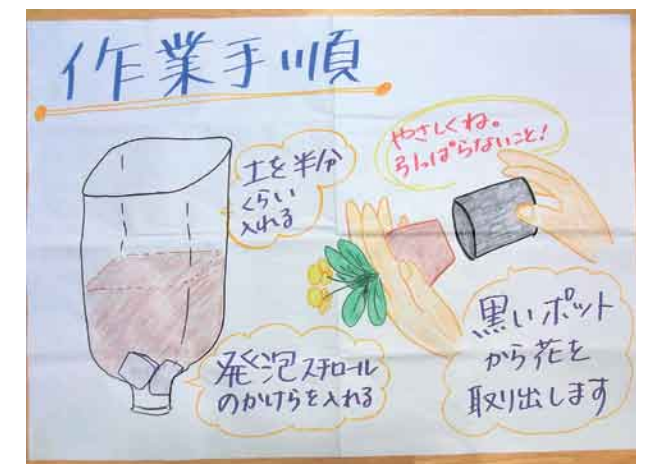 作業手順
土を半分
くらい
入れる
やさしくね。
引っぱらないこと!
発泡スチロール
のかけらを入れる
黒いポット
から花を
取り出します